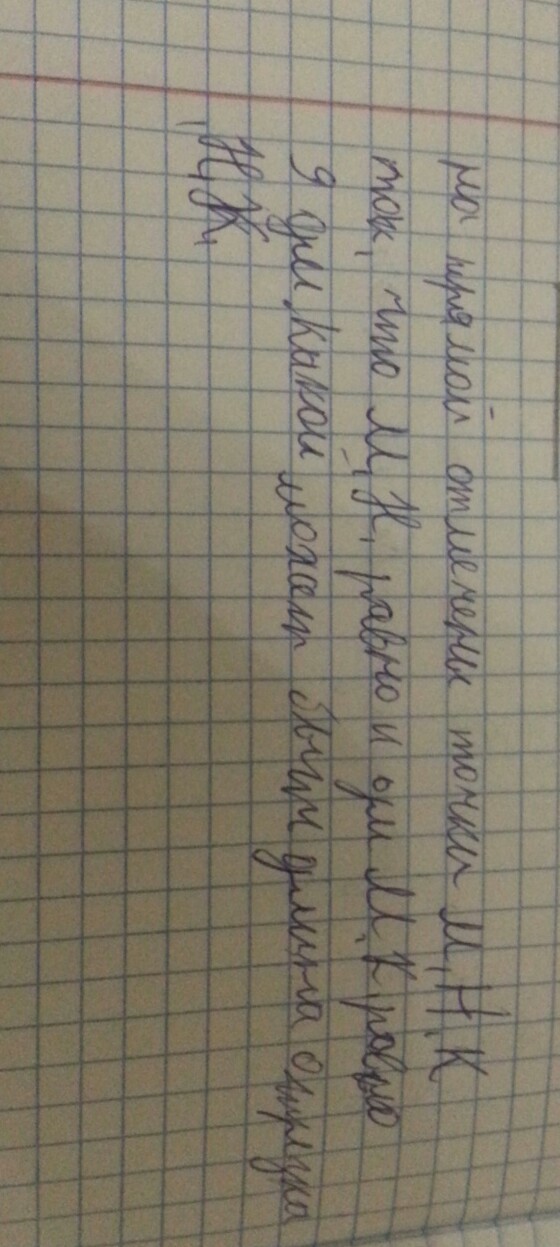 на прямой отмечены точки М, Н, К
так, что М, Н, равно 4 дм М, К равно
9 дм какой может быть длина отрезка
Н, К,